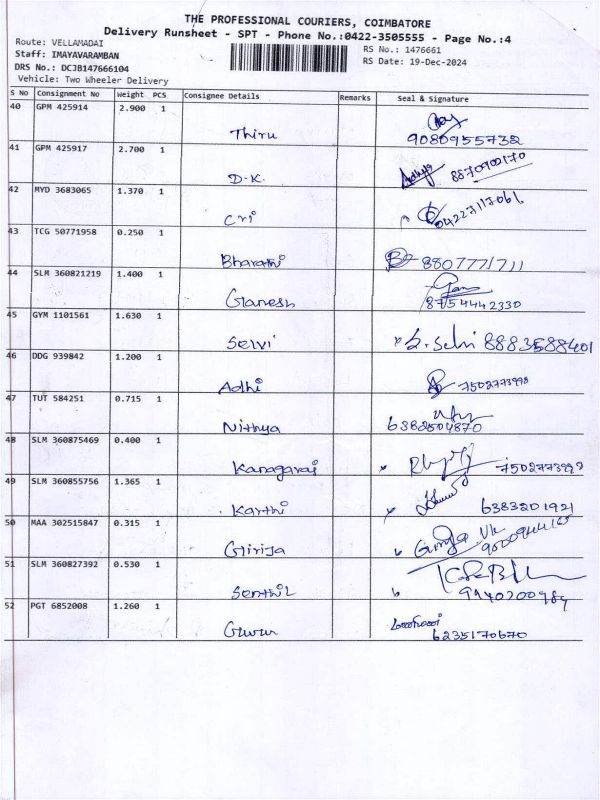 THE PROFESSIONAL COURIERS, COIMBATORE
Delivery Runsheet - SPT - Phone No.:0422-3505555 - Page No.:4
Route: VELLAMADAI
RS No.: 1476661
Staff: IMAYAVARAMBAN
RS Date: 19-Dec-2024
DRS No.: DCJB147666104
Vehicle: Two Wheeler Delivery
S No Consignment No Weight PCS Consignee Details Remarks Seal & Signature
40 GPM 425914 2.900 1
Thiru 9080955732
41 GPM 425917 2.700 1
D.K. 8870900170
42 MYD 3683065 1.370 1
Cri 04227117061
43 TCG 50771958 0.250 1
Bharathi 8807771711
44 SLM 360821219 1.400 1
Ganesh 8754442330
45 GYM 1101561 1.630 1
Selvi S. Selvi 8883588401
46 DDG 939842 1.200 1
Adhi 7502773998
47 TUT 584251 0.715 1
Nithya 6382504870
48 SLM 360875469 0.400 1
Kanagaraj 7502773998
49 SLM 360855756 1.365 1
Karthi 6383201921
50 MAA 302515847 0.315 1
Girija Girija
51 SLM 360827392 0.530 1
Senthil
52 PGT 6852008 1.260 1
Guru 6235170670